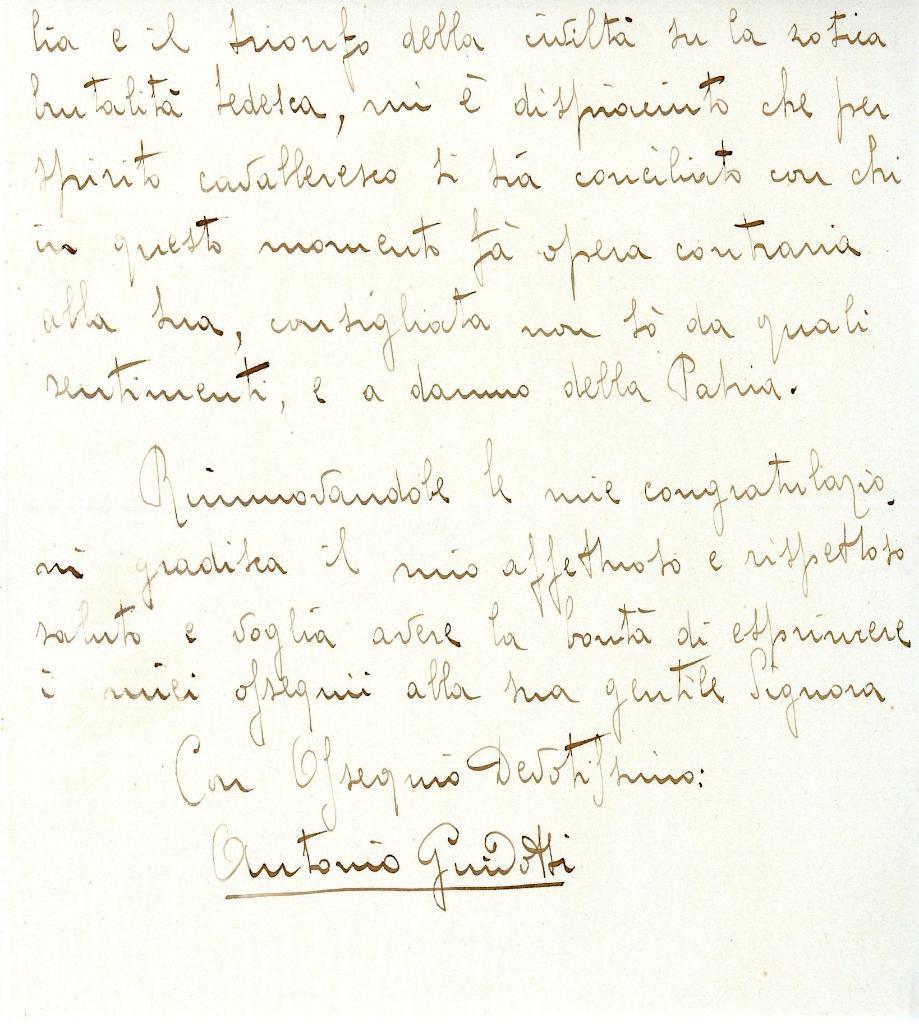 lia e il trionfo della civiltà su la zotica
brutalità tedesca, mi è dispiaciuto che per
spirito cavalleresco si sia conciliato con chi
in questo momento fà opera contraria
alla sua, consigliata non sò da quali
sentimenti, e a danno della Patria.
Rinnovandole le mie congratulazio-
ni gradisca il mio affettuoso e rispettoso
saluto e voglia avere la bontà di esprimere
i miei ossequii alla sua gentile Signora
Con Ossequio Devotissimo:
Antonio Guidotti